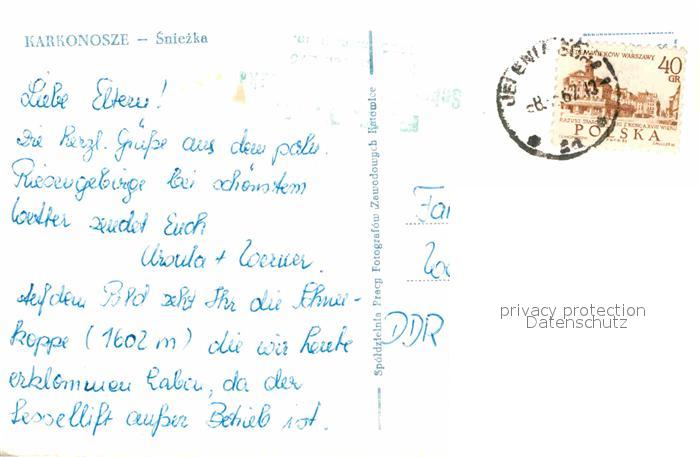 KARKONOSZE – Śnieżka
Liebe Eltern!
Die herzl. Grüße aus dem poln.
Riesengebirge bei schönstem
Wetter sendet Euch
Ursula + Werner.
Auf dem Bild seht Ihr die Schnee-
koppe (1602 m) die wir heute
erklommen haben, da der
Sessellift außer Betrieb ist.
Spółdzielnia Pracy Fotografów Zawodowych Katowice
WIEKÓW WARSZAWY
40
GR
POLSKA
JELENIA GÓRA
Fa
DDR
privacy protection
Datenschutz